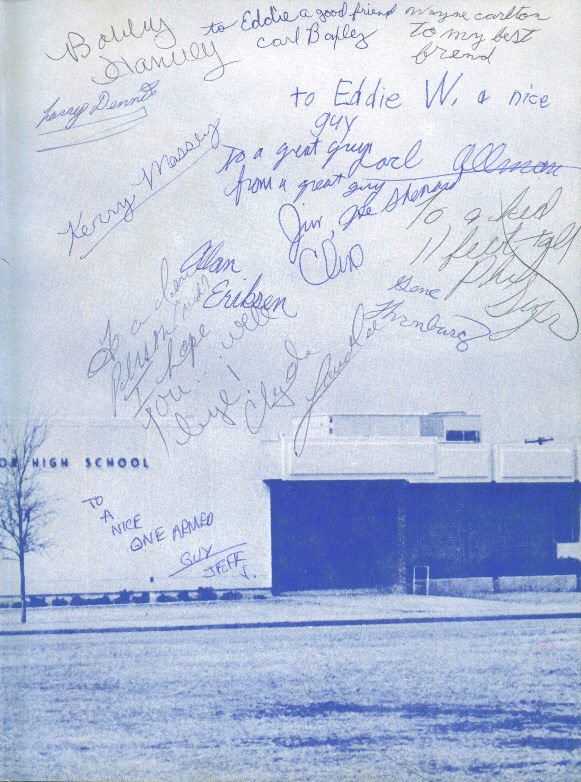 Bobby
Harvey
to Eddie a good friend
Carl
Wayne Carlton
to my best
frend
Larry Dennis
to Eddie W. a nice
guy
Kerry Massey
To a great guy
from a great guy
Carl Allman
Jim, Joe
Clin
To a
11 feet tall
Phil
Gene
Thornburg
Alan
Eriksen
To a
Person
I hope
you well
bye!
Clyde
OR HIGH SCHOOL
TO
A
NICE
ONE ARMED
GUY
JEFF J.